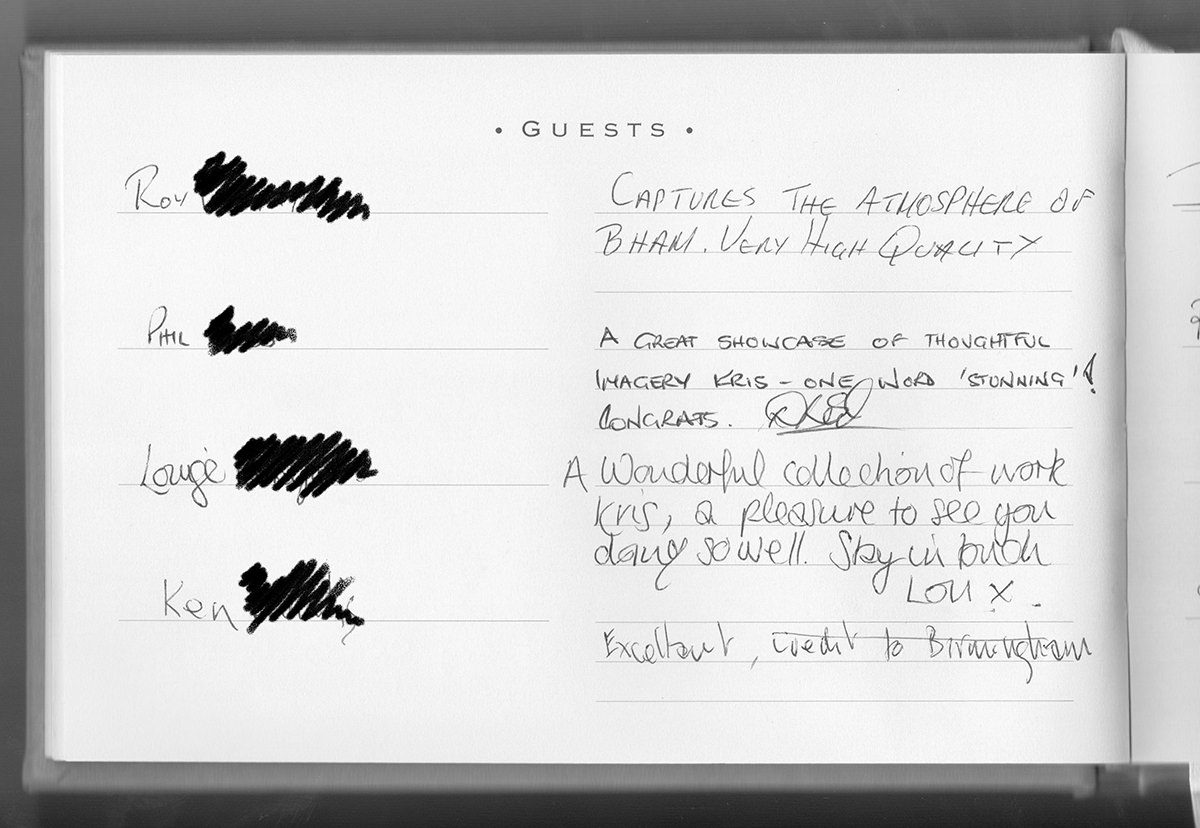 • GUESTS •
Roy
CAPTURES THE ATMOSPHERE OF
BHAM. VERY HIGH QUALITY
PHIL
A GREAT SHOWCASE OF THOUGHTFUL
IMAGERY KRIS - ONE WORD 'STUNNING'!
CONGRATS.
Louise
A Wonderful collection of work
Kris, a pleasure to see you
doing so well. Stay in touch
LOU X.
Ken
Excellent, credit to Birmingham